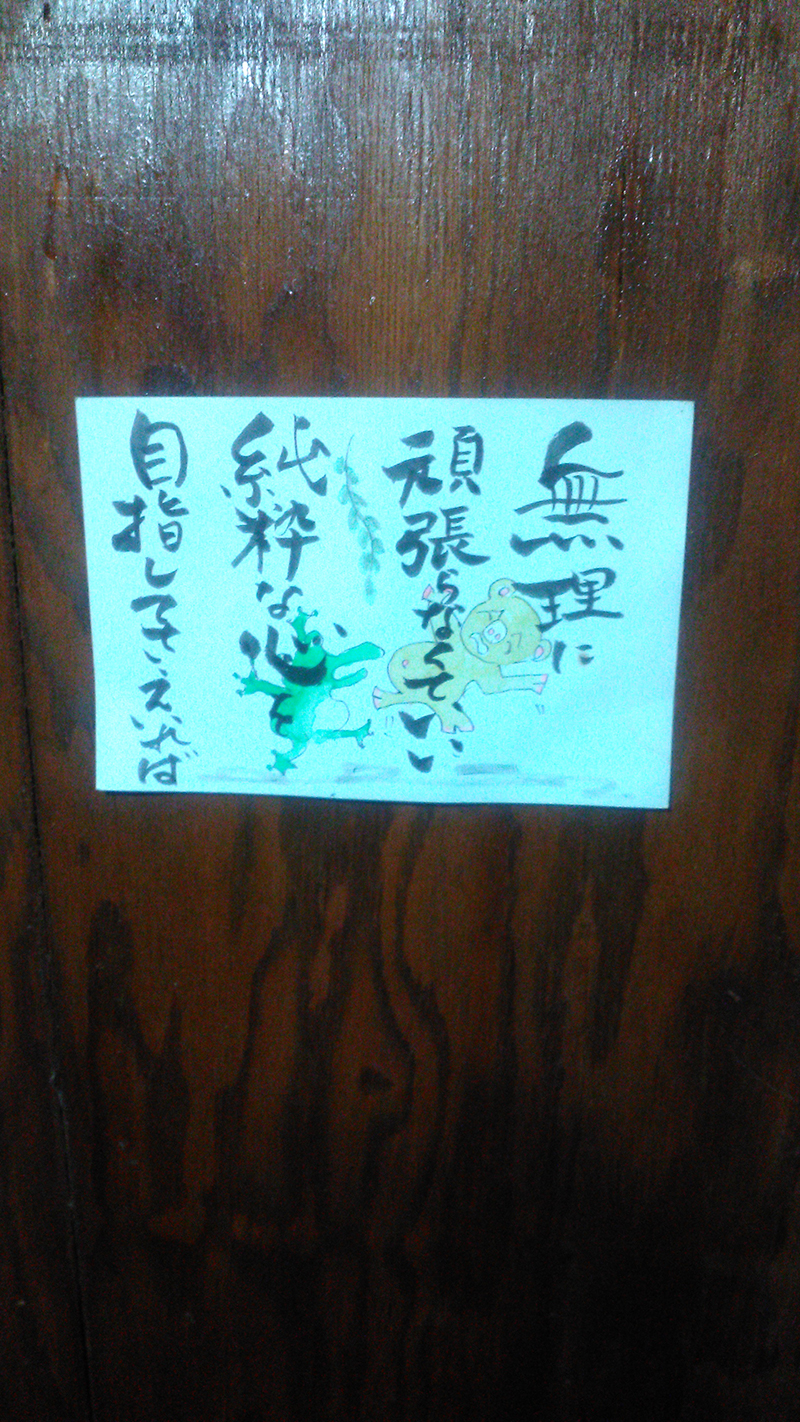 無理に
頑張らなくていい
純粋な心で
目指してさえいれば